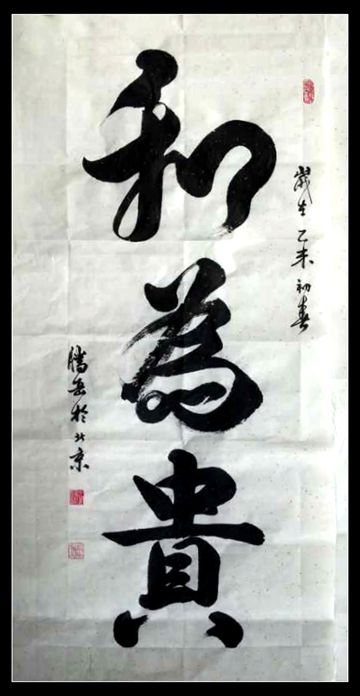 和為貴
歲在乙未初春
騰岳於北京